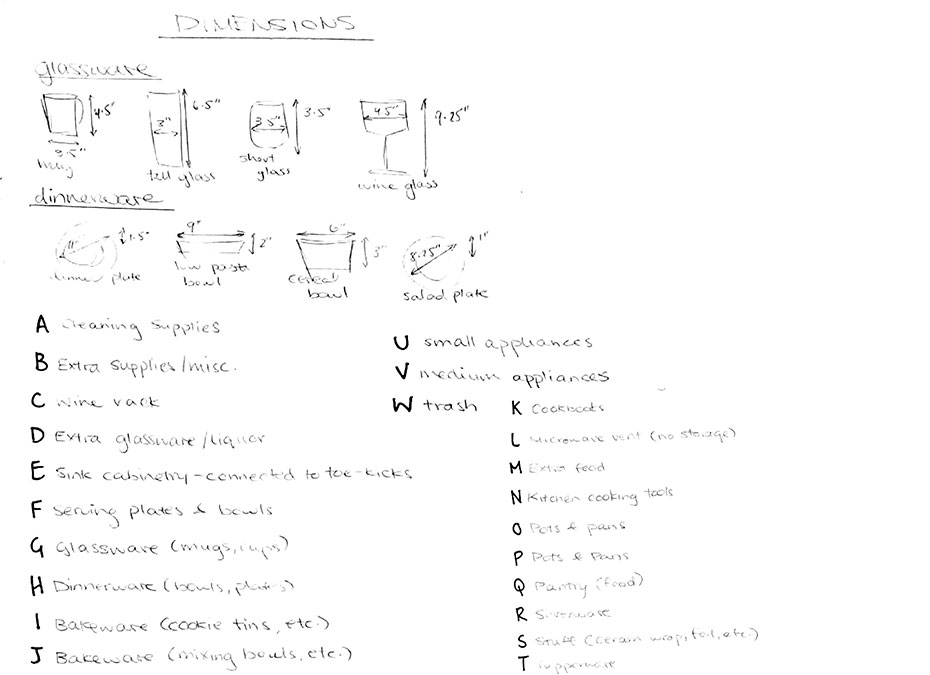 DIMENSIONS
glassware
4.5"
3.5"
mug
6.5"
3"
tall glass
3.5"
3.5"
short
glass
4.5"
9.25"
wine glass
dinnerware
11"
1.5"
dinner plate
9"
2"
low pasta
bowl
6"
3"
cereal
bowl
8.25"
1"
salad plate
A cleaning supplies
B Extra supplies/misc.
C wine rack
D Extra glassware/liquor
E Sink cabinetry-connected to toe-kicks
F serving plates & bowls
G Glassware (mugs, cups)
H Dinnerware (bowls, plates)
I Bakeware (cookie tins, etc.)
J Bakeware (mixing bowls, etc.)
U small appliances
V medium appliances
W trash
K Cookbooks
L Microwave vent (no storage)
M Extra food
N Kitchen cooking tools
O Pots & pans
P Pots & Pans
Q Pantry (food)
R Silverware
S Stuff (ceran wrap, foil, etc.)
T tupperware